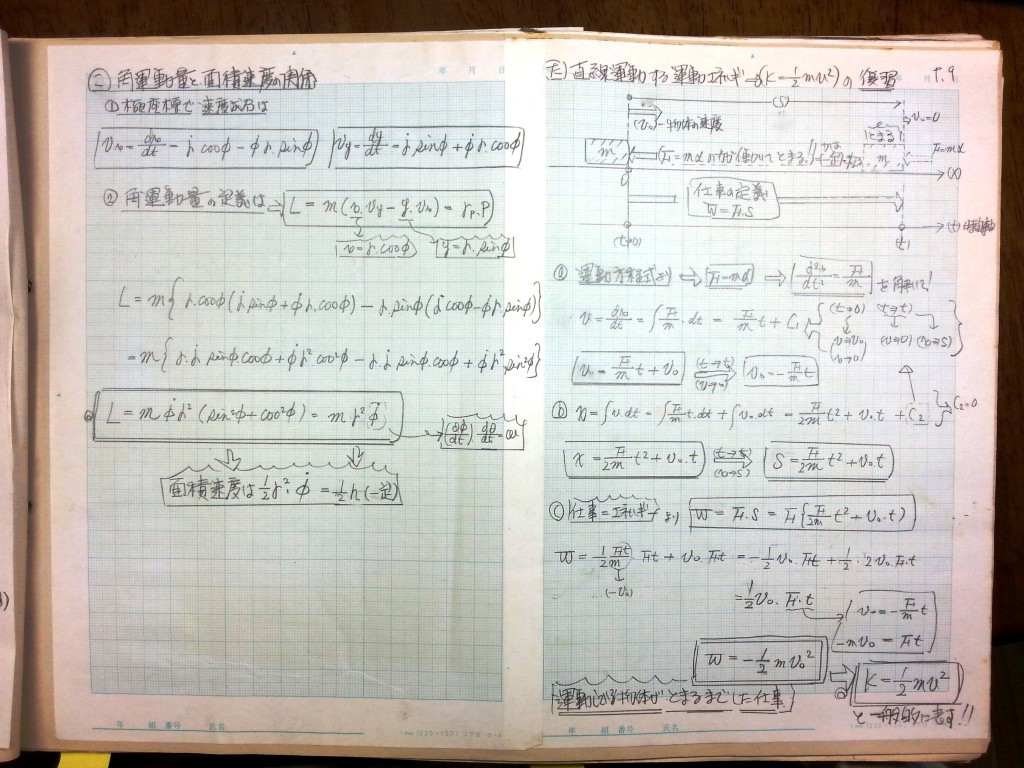 ㊁ 角運動量と面積速度の関係
① 極座標で速度成分は
Vx = dx/dt = ṙ cosφ − φ̇ r.sinφ
Vy = dy/dt = ṙ sinφ + φ̇ r.cosφ
② 角運動量の定義は ⇒ L = m(x.Vy − y.Vx) = rp.P
x = r.cosφ
y = r.sinφ
L = m{r.cosφ(ṙ sinφ + φ̇ r.cosφ) − r.sinφ(ṙ cosφ − φ̇ r.sinφ)}
= m{r.ṙ sinφ cosφ + φ̇ r² cos²φ − r.ṙ sinφ cosφ + φ̇ r² sin²φ}
L = m φ̇ r² (sin²φ + cos²φ) = m r² φ̇
面積速度は ½ r² φ̇ = ½ h (一定)
直線運動する運動エネルギー (K = ½ mv²) の復習
P.9
(S)
(V₀) 物体の速度
V = 0
とまる
m
m
F = mα
O
(x)
仕事の定義
W = F.S
(t=0)
t₁
(t)
ⓐ 運動方程式より ⇒ F = mα → d²x/dt² = F/m
v = dx/dt = ∫F/m.dt = F/m t + C₁
v = F/m t + v₀
v₀ = − F/m t
ⓑ x = ∫v.dt = ∫F/m t.dt + ∫v₀.dt = F/2m t² + v₀.t + C₂
C₂ = 0
x = F/2m t² + v₀.t
S = F/2m t² + v₀.t
ⓒ 仕事 = エネルギー より W = F.S = F{F/2m t² + v₀.t}
W = ½ Ft/m . Ft + v₀.Ft = −½ v₀.Ft + ½ . 2 v₀.F.t
(−v₀)
= ½ v₀.F.t
v₀ = − F/m t
−mv₀ = Ft
W = −½ m v₀²
K = ½ mv²
物体がとまるまでした仕事
と一般的に表す!!
年 組 番号 氏名
年 組 番号 氏名